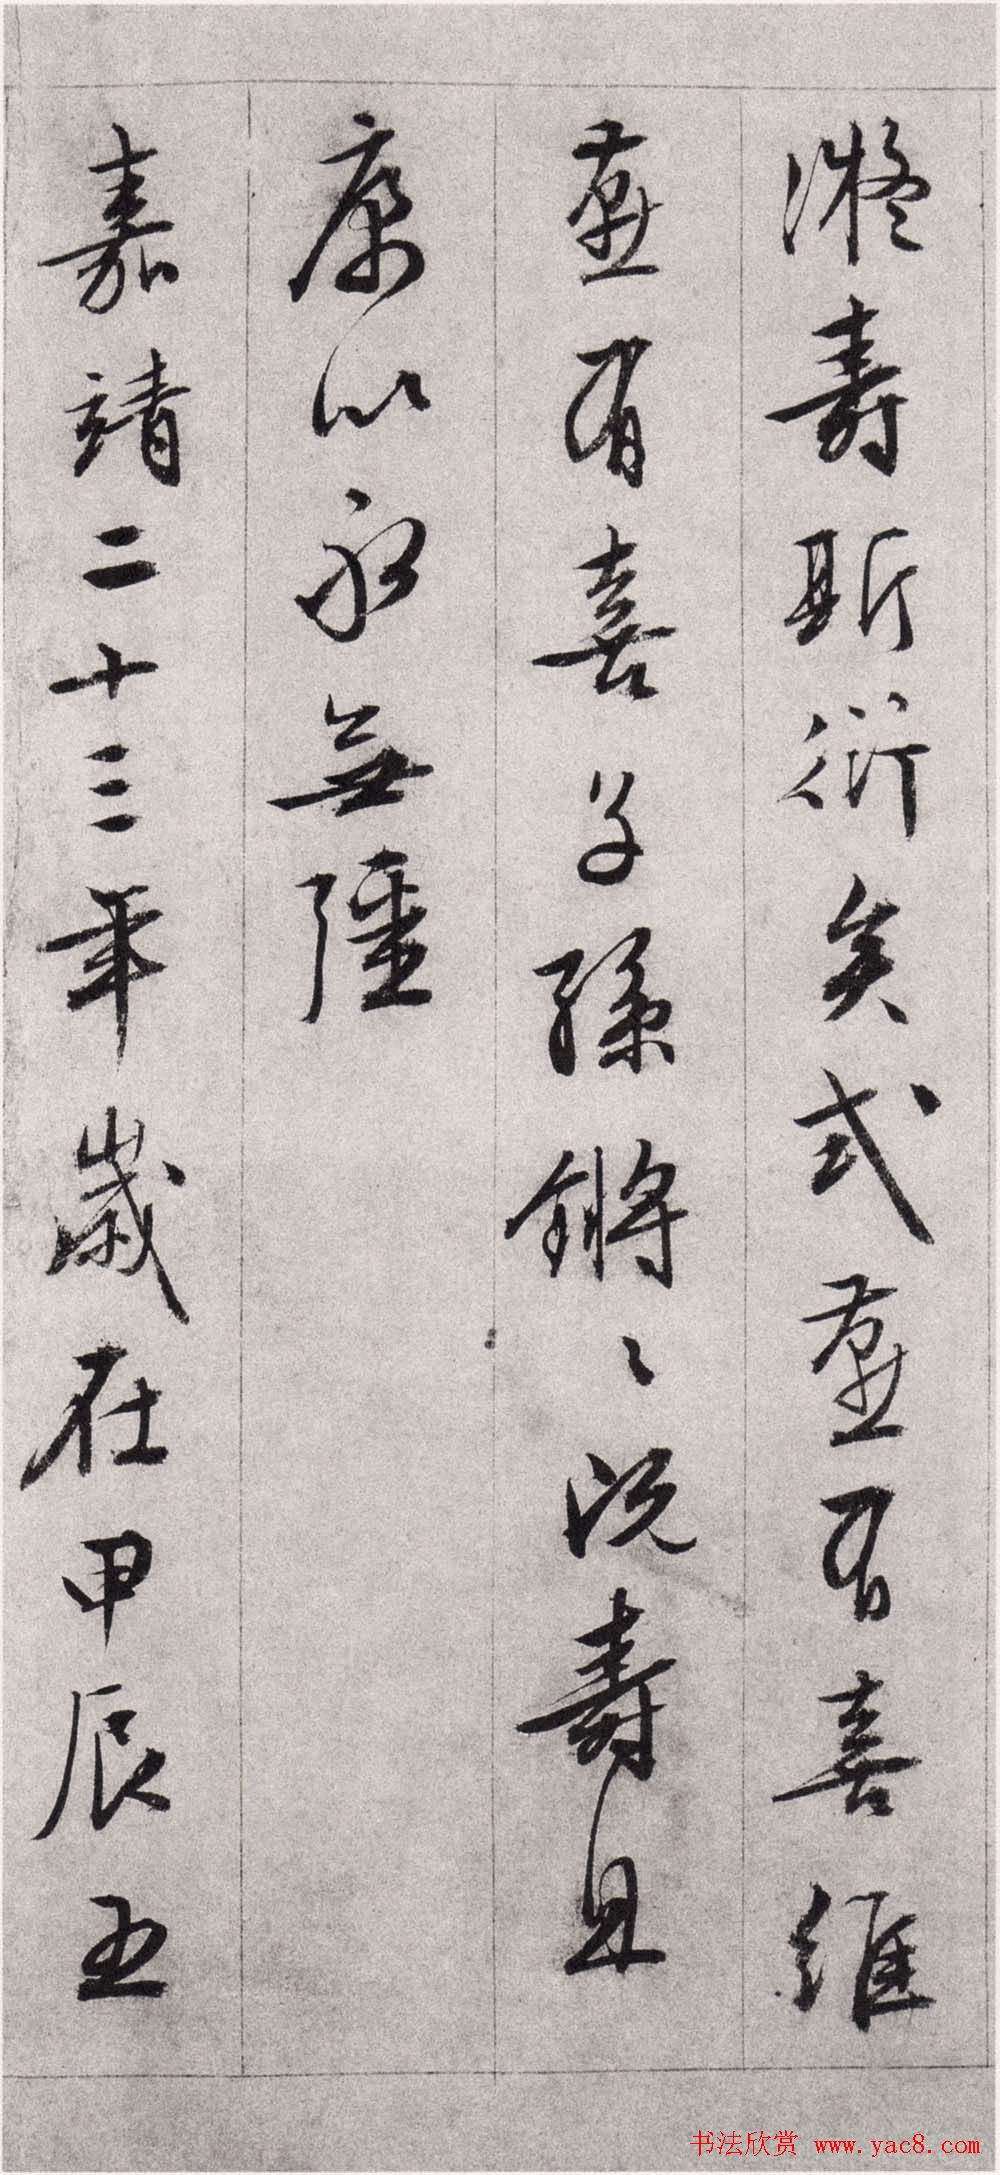 凝壽斯衍矣式燕有喜維
燕有喜子孫鏘〻既壽且
康以永無疆
嘉靖二十三年歲在甲辰五
书法欣赏 www.yac8.com